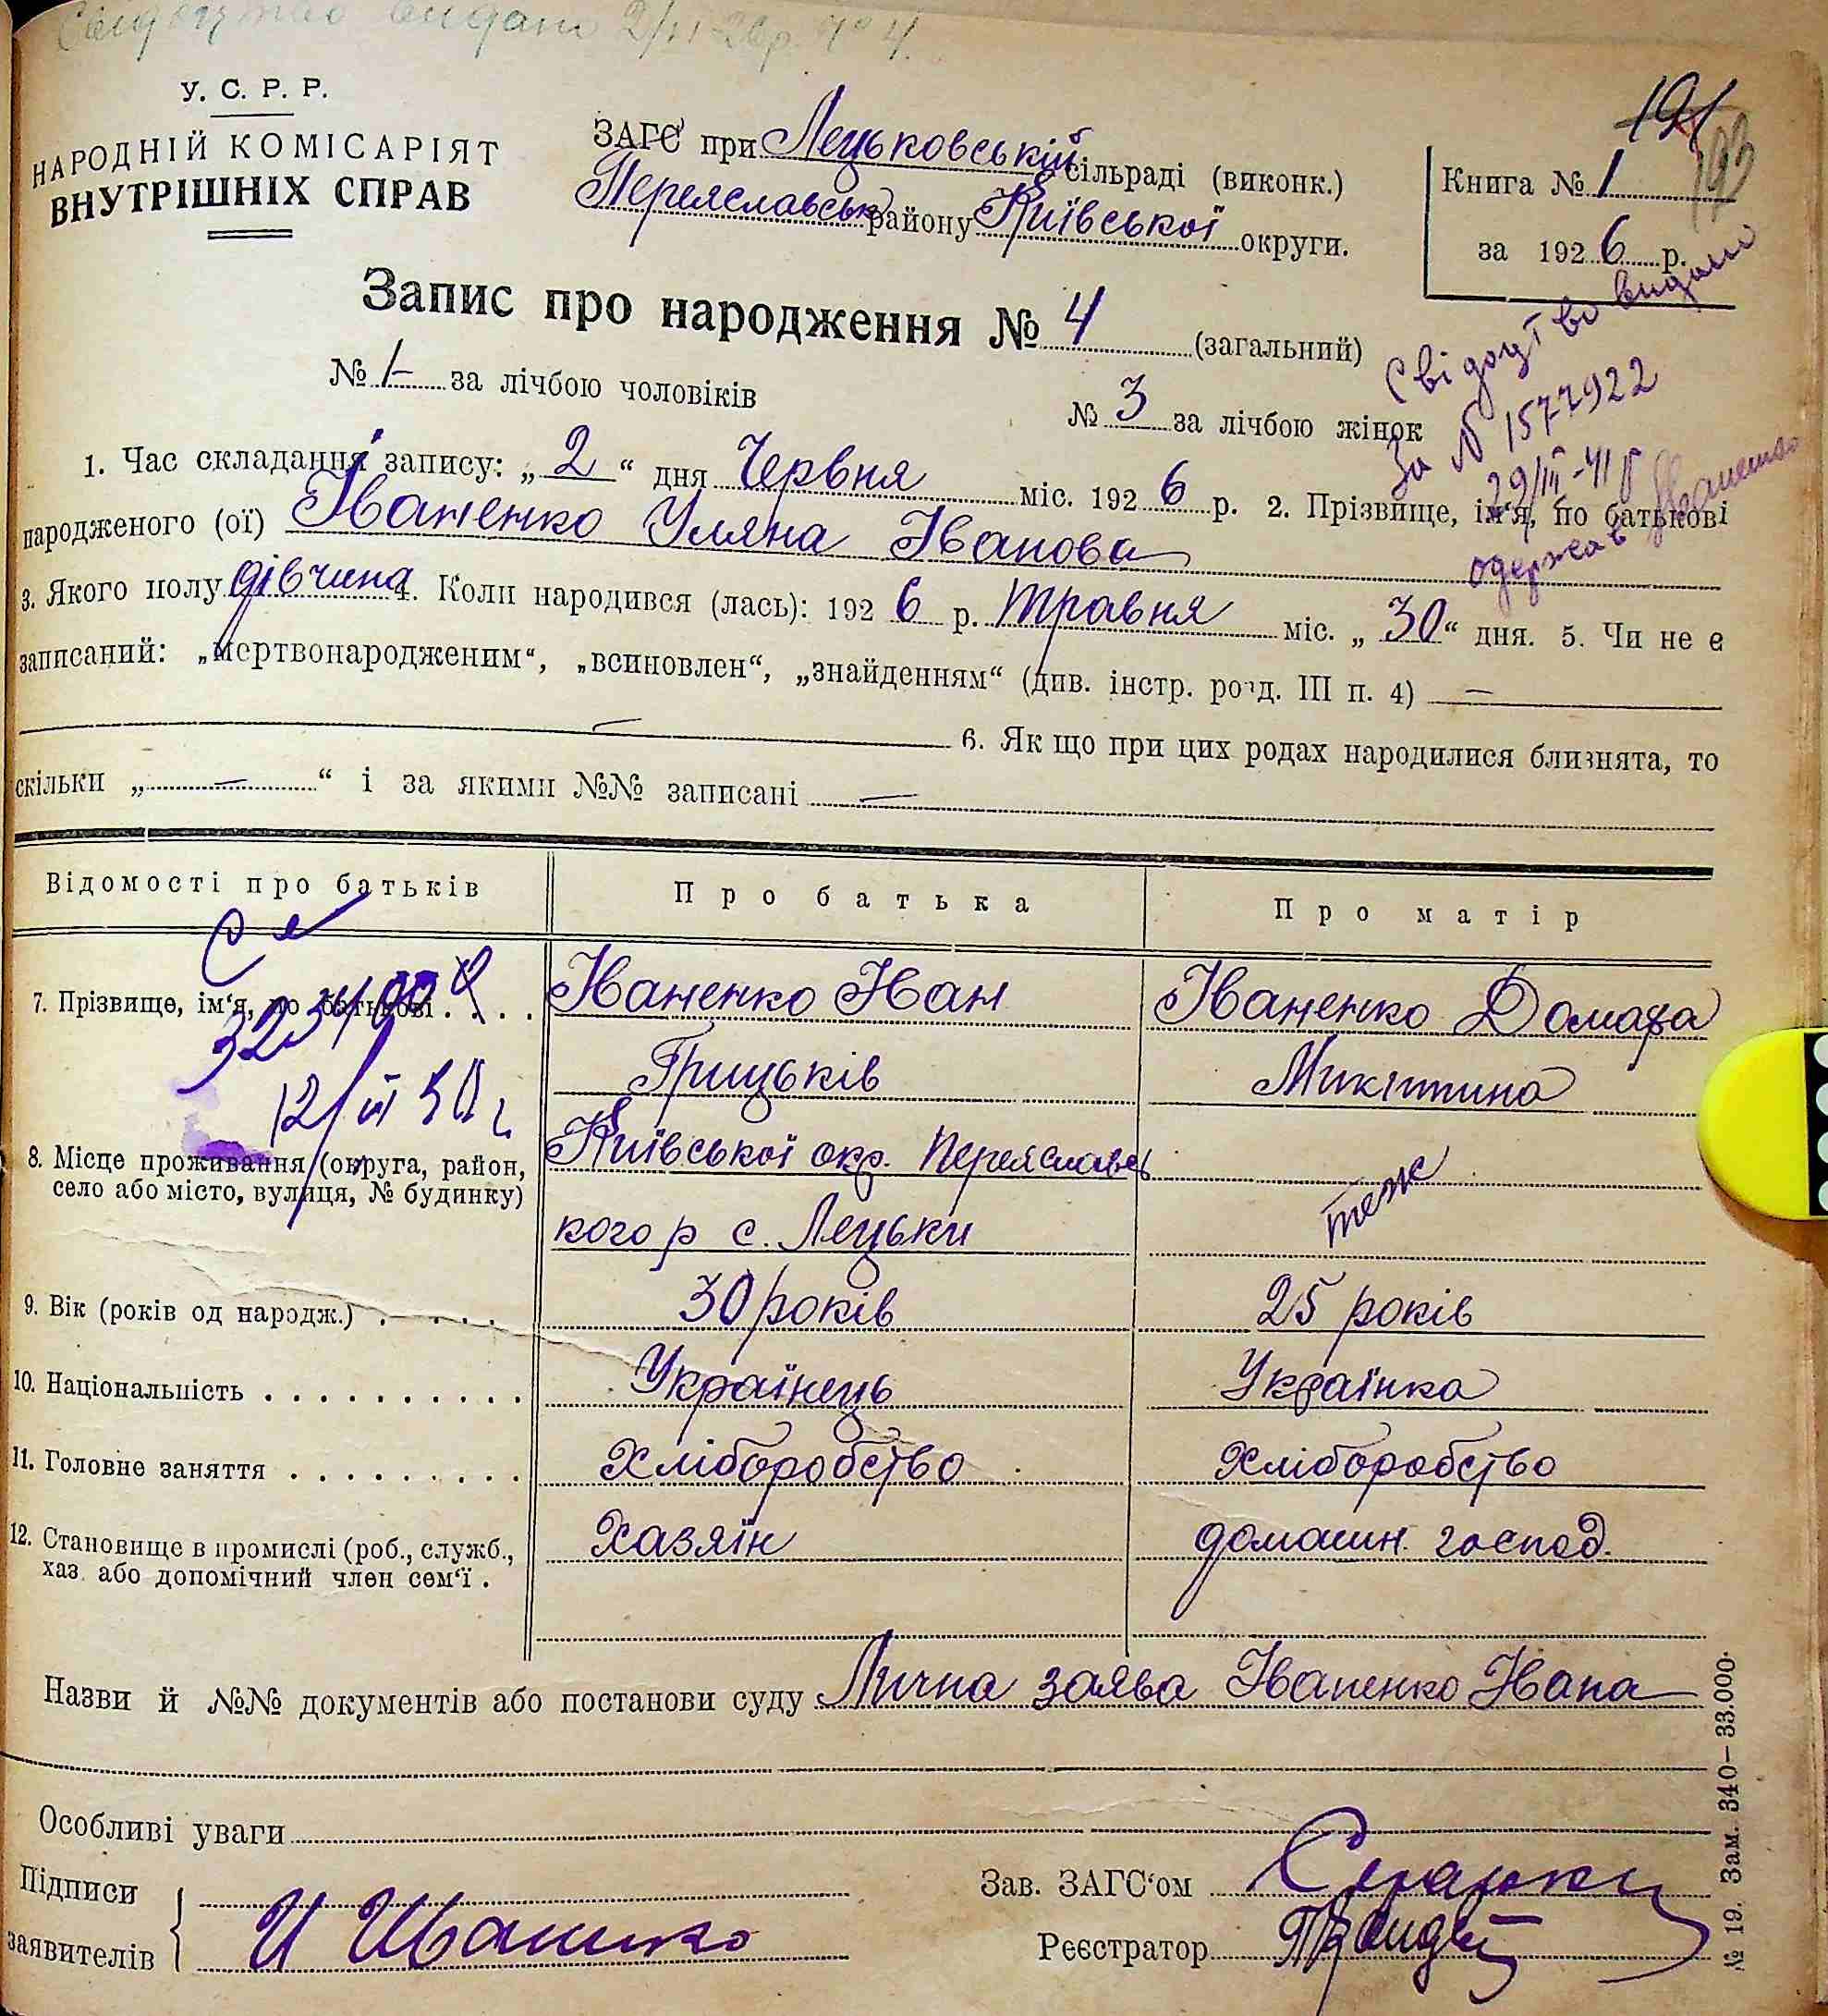 Свідоцтво видано 2/VI-26р. № 4.
У. С. Р. Р.
НАРОДНІЙ КОМІСАРІЯТ
ВНУТРІШНІХ СПРАВ
ЗАГС при Лецьковській сільраді (виконк.)
Переяславськ району Київської округи.
191
193
Книга № 1
за 1926 р.
Запис про народження № 4 (загальний)
№ 1- за лічбою чоловіків
№ 3 за лічбою жінок
Свідоцтво видано
За № 1577922
29/III-41р
одержав Іваненко
1. Час складання запису: „2“ дня Червня міс. 1926 р. 2. Прізвище, ім'я, по батькові
народженого (ої) Іваненко Уляна Іванова
3. Якого полу дівчина 4. Коли народився (лась): 1926 р. Травня міс. „30“ дня. 5. Чи не є
записаний: „мертвонародженим“, „всиновлен“, „знайденням“ (див. інстр. розд. III п. 4) —
— 6. Як що при цих родах народилися близнята, то
скільки „—“ і за якими №№ записані —
Відомості про батьків
Про батька
Про матір
7. Прізвище, ім'я, по батькові . . . .
Іваненко Іван
Іваненко Домаха
Грицьків
Микитина
12/VI 50 г
8. Місце проживання (округа, район,
село або місто, вулиця, № будинку)
Київської окр. Переяславсь
кого р с. Лецьки
теж
9. Вік (років од народж.) . . . .
30 років
25 років
10. Національність . . . . . . . . . .
Українець
Українка
11. Головне заняття . . . . . . . . .
Хліборобство
Хліборобство
12. Становище в промислі (роб., служб.,
хаз. або допомічний член сем'ї .
Хазяїн
домашн. господ.
Назви й №№ документів або постанови суду Лична заява Іваненко Івана
Особливі уваги
Підписи
заявителів
И Иваненко
Зав. ЗАГС'ом
Реєстратор
№ 19. Зам. 340–33.000.